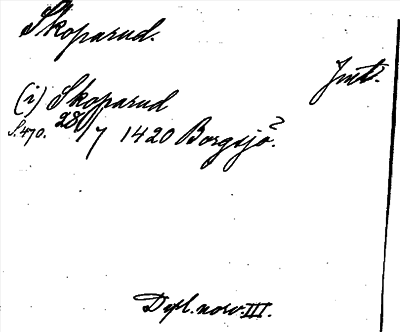 Skoparud.
Jmt.
(i) Skoparud
S. 470. 28/7 1420 Borgsjö?
Dipl. norv. III.